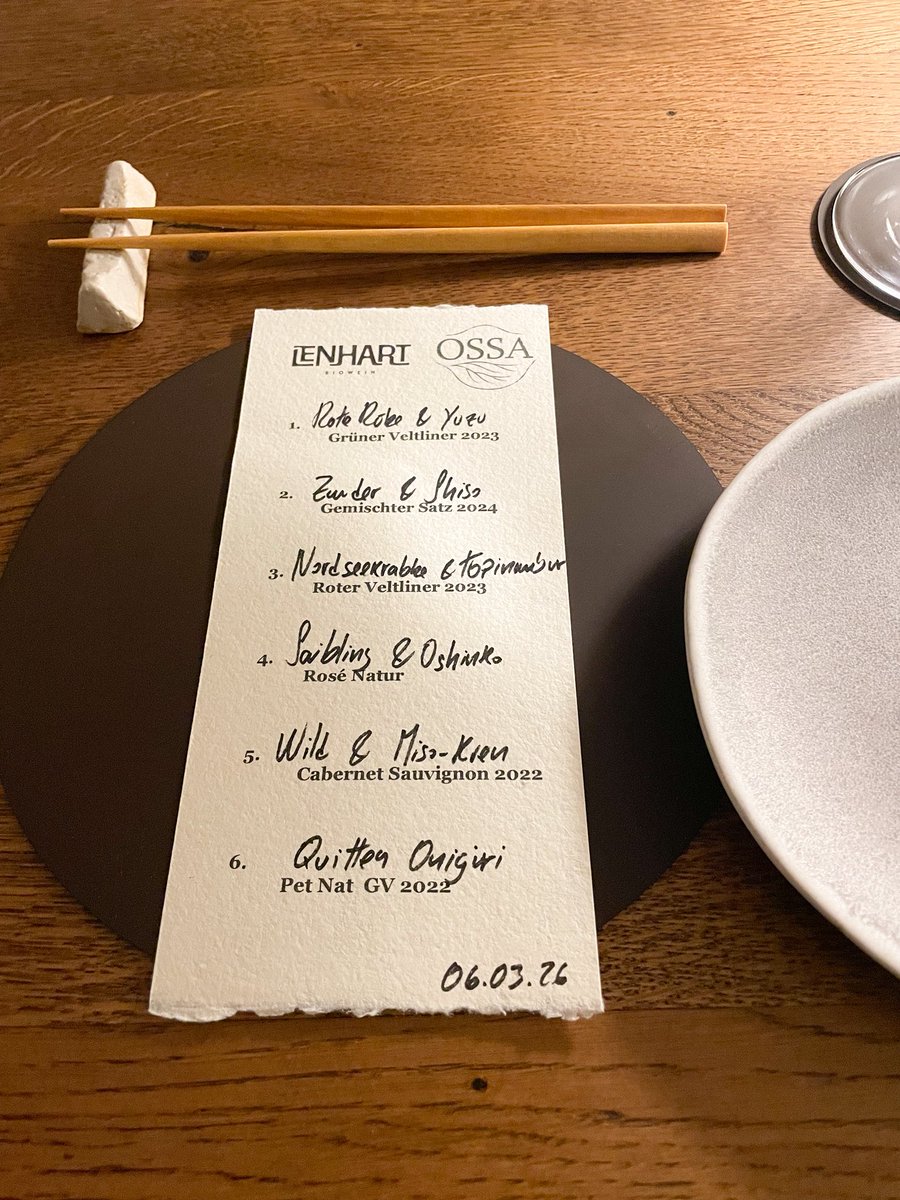 LENHART
BIOWEIN
OSSA
1. Rote Rübe & Yuzu
Grüner Veltliner 2023
2. Zander & Shiso
Gemischter Satz 2024
3. Nordseekrabbe & Topinambur
Roter Veltliner 2023
4. Saibling & Oshinko
Rosé Natur
5. Wild & Miso-Kren
Cabernet Sauvignon 2022
6. Quitten Onigiri
Pet Nat GV 2022
06.03.26